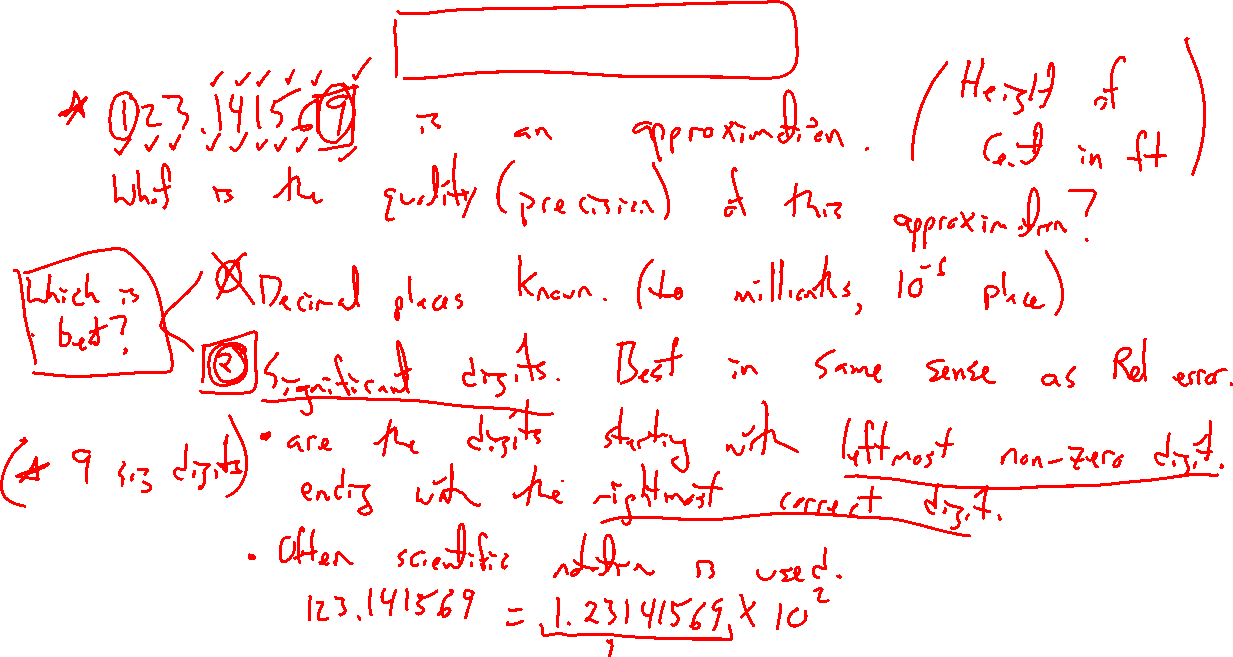 * 123.141569 is an approximation. (Height of Ceil in ft)
What is the quality (precision) of this approximation?
Which is best?
① Decimal places known. (to millionths, 10⁻⁶ place)
② Significant digits. Best in same sense as Rel error.
(* 9 sig digits)
• are the digits starting with leftmost non-zero digit.
ending with the rightmost correct digit.
• Often scientific notation is used.
123.141569 = 1.23141569 × 10²
9